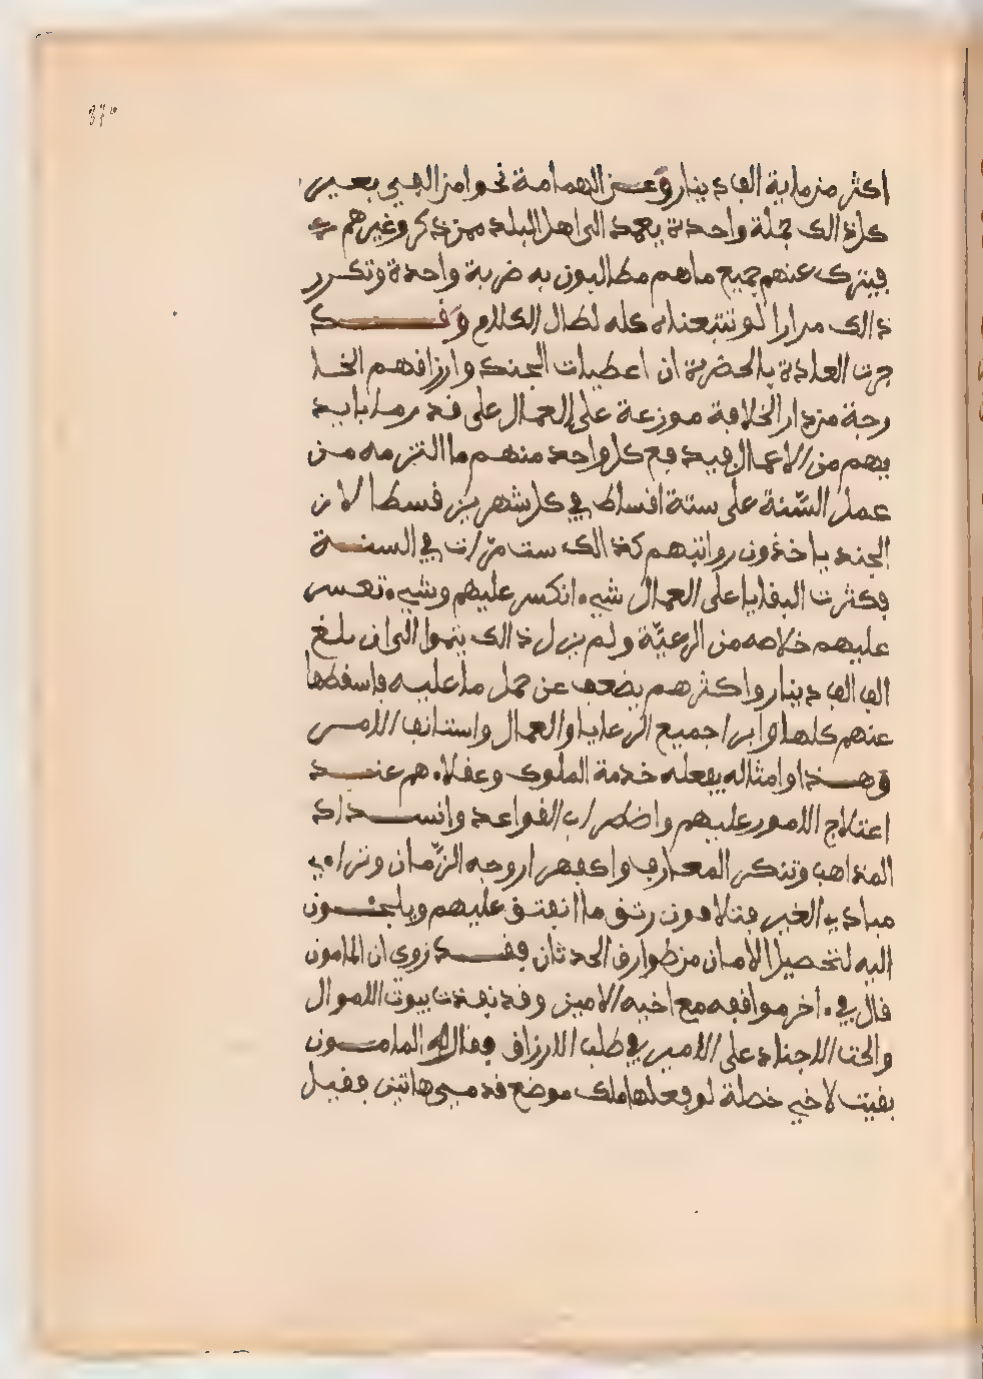 37º
اكثر من ماية الف دينار وعن الهمامة نحوا من الفي بعير
كل ذالك جملة واحدة يعمد الى اهل البلد ممن ذكر وغيرهم
فيترك عنهم جميع ما هم مطالبون به ضربة واحدة وتكرر
ذالك مرارا لو تتبعناه كله لطال الكلام وقد
جرت العادة بالحضرة ان اعطيات الجند وارزاقهم الخا
رجة من دار الخلافة موزعة على العمال على قدر ما بايد
يهم من الاعمال فيدفع كل واحد منهم ما التزمه من
عمل السّنة على ستة اقساط في كل شهرين قسطا لان
الجند ياخذون رواتبهم كذالك ست مرّات في السنة
فكثرت البقايا على العمال شيء انكسر عليهم وشيء تعسر
عليهم خلاصه من الرعيّة ولم يزل ذالك ينموا الى ان بلغ
الف الف دينار واكثرهم يضعف عن حمل ما عليه فاسقطها
عنهم كلها وابرا جميع الرعايا والعمال واستانف الامر
وهذا وامثاله يفعله خدمة الملوك وعقلاءهم عند
اعتلاج الامور عليهم واضطراب القواعد وانسداد
المذاهب وتنكر المعارف واكفهرار وجه الزّمان وتراءي
مبادي الغير فيتلافون رتق ما انفتق عليهم ويلجئون
اليه لتحصيل الامان من طوارق الحدثان فقد روي ان المامون
قال في ءاخر مواقفه مع اخيه الامين وقد نفدت بيوت الاموال
والحت الاجناد على الامير في طلب الارزاق فقال له المامون
بقيت لاخي خصلة لو فعلها ملك موضع قدمي هاتين فقيل